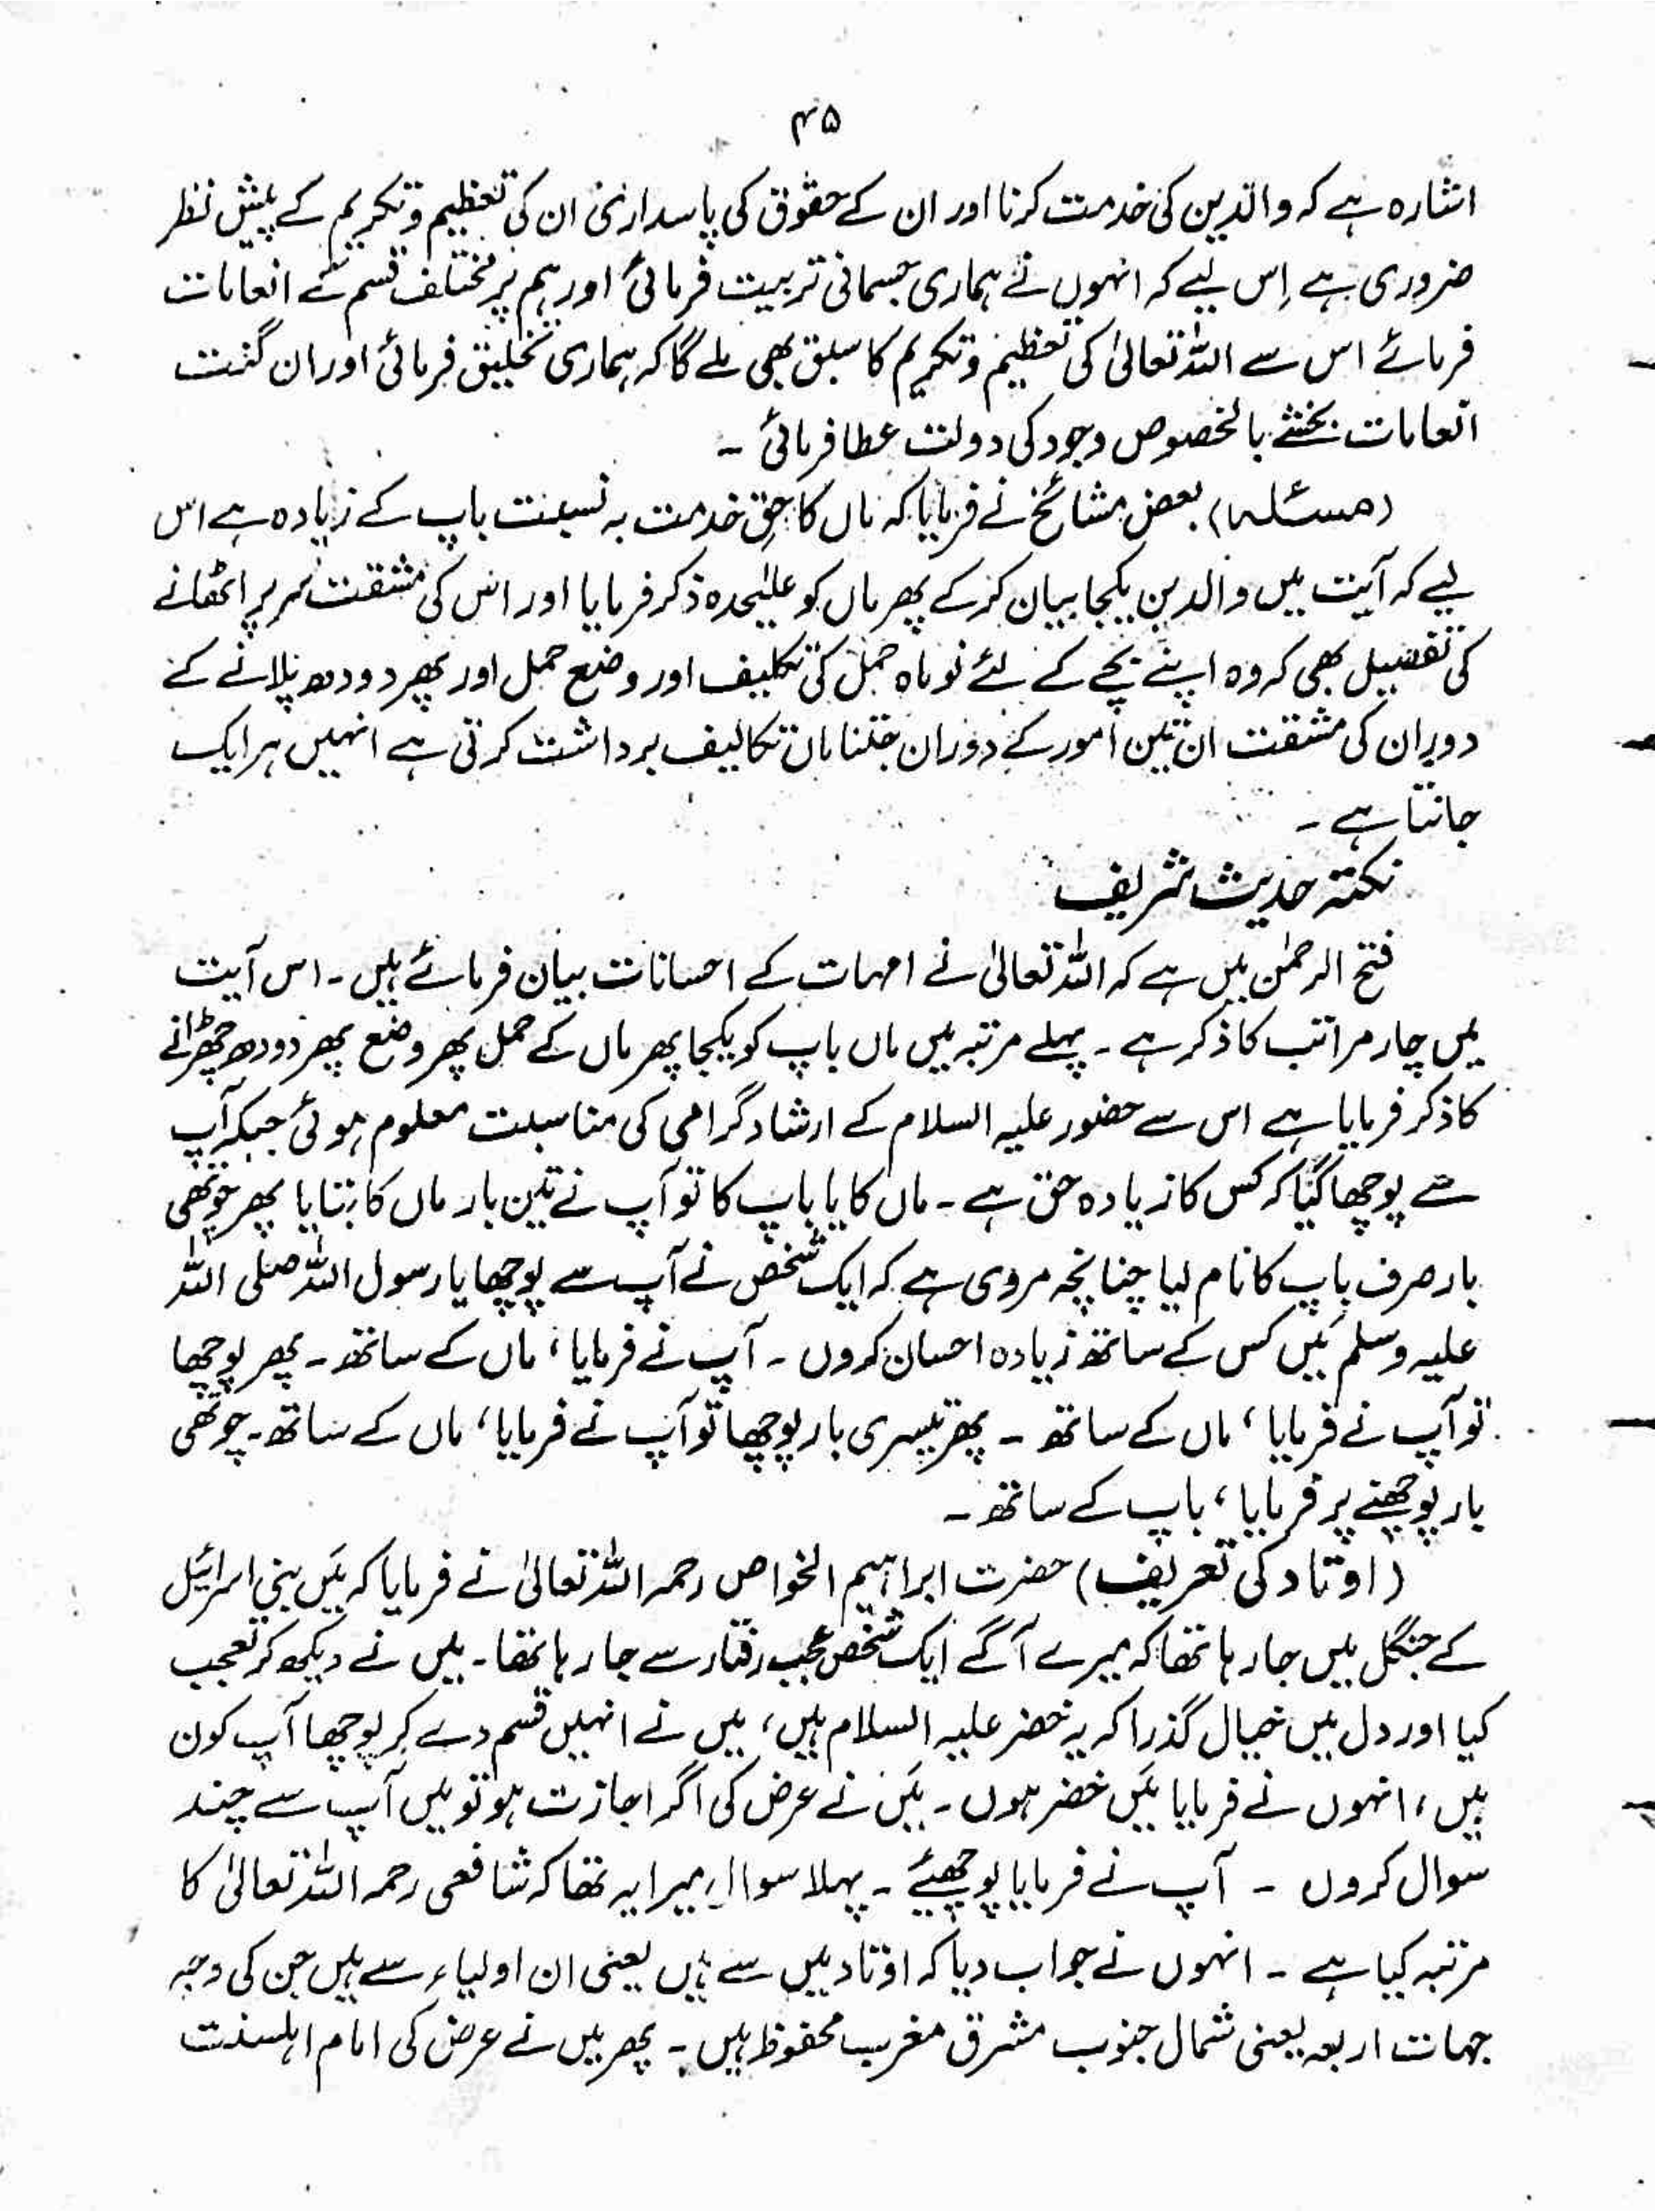 ۴۵
اشارہ ہے کہ والدین کی خدمت کرنا اور ان کے حقوق کی پاسداری ان کی تعظیم و تکریم کے پیش نظر
ضروری ہے اِس لیے کہ انہوں نے ہماری جسمانی تربیت فرمائی اور ہم پر مختلف قسم کے انعامات
فرمائے اس سے اللہ تعالیٰ کی تعظیم و تکریم کا سبق بھی ملے گا کہ ہماری تخلیق فرمائی اور ان گنت
انعامات بخشے بالخصوص وجود کی دولت عطا فرمائی ۔
(مسئلہ) بعض مشائخ نے فرمایا کہ ماں کا حقِ خدمت بہ نسبت باپ کے زیادہ ہے اس
لیے کہ آیت میں والدین یکجا بیان کر کے پھر ماں کو علیٰحدہ ذکر فرمایا اور اس کی مشقت سر پر اٹھانے
کی تفصیل بھی کہ وہ اپنے بچے کے لئے نو ماہ حمل کی تکلیف اور وضع حمل اور پھر دودھ پلانے کے
دوران کی مشقت ان تین امور کے دوران جتنا ماں تکالیف برداشت کرتی ہے انہیں ہر ایک
جانتا ہے ۔
نکتہ حدیث شریف
فتح الرحمٰن میں ہے کہ اللہ تعالیٰ نے امہات کے احسانات بیان فرمائے ہیں ۔ اس آیت
میں چار مراتب کا ذکر ہے ۔ پہلے مرتبہ میں ماں باپ کو یکجا پھر ماں کے حمل پھر وضع پھر دودھ چھڑانے
کا ذکر فرمایا ہے اس سے حضور علیہ السلام کے ارشاد گرامی کی مناسبت معلوم ہوئی جبکہ آپ
سے پوچھا گیا کہ کس کا زیادہ حق ہے ۔ ماں کا یا باپ کا تو آپ نے تین بار ماں کا بتایا پھر چوتھی
بار صرف باپ کا نام لیا چنانچہ مروی ہے کہ ایک شخص نے آپ سے پوچھا یا رسول اللہ صلی اللہ
علیہ وسلم مَیں کس کے ساتھ زیادہ احسان کروں ۔ آپ نے فرمایا ، ماں کے ساتھ ۔ پھر پوچھا
تو آپ نے فرمایا ، ماں کے ساتھ ۔ پھر تیسری بار پوچھا تو آپ نے فرمایا ، ماں کے ساتھ ۔ چوتھی
بار پوچھنے پر فرمایا ، باپ کے ساتھ ۔
(اوتاد کی تعریف) حضرت ابراہیم الخواص رحمہ اللہ تعالیٰ نے فرمایا کہ مَیں بنی اسرائیل
کے جنگل میں جا رہا تھا کہ میرے آگے ایک شخص عجیب رفتار سے جا رہا تھا ۔ میں نے دیکھ کر تعجب
کیا اور دل میں خیال گذرا کہ یہ خضر علیہ السلام ہیں ، میں نے انہیں قسم دے کر پوچھا آپ کون
ہیں ، انہوں نے فرمایا مَیں خضر ہوں ۔ مَیں نے عرض کی اگر اجازت ہو تو میں آپ سے چند
سوال کروں ۔ آپ نے فرمایا پوچھیئے ۔ پہلا سوال میرا یہ تھا کہ شافعی رحمہ اللہ تعالیٰ کا
مرتبہ کیا ہے ۔ انہوں نے جواب دیا کہ اوتاد میں سے ہیں یعنی ان اولیاء سے ہیں جن کی وجہ
جہات اربعہ یعنی شمال جنوب مشرق مغرب محفوظ ہیں ۔ پھر میں نے عرض کی امام اہلسنت